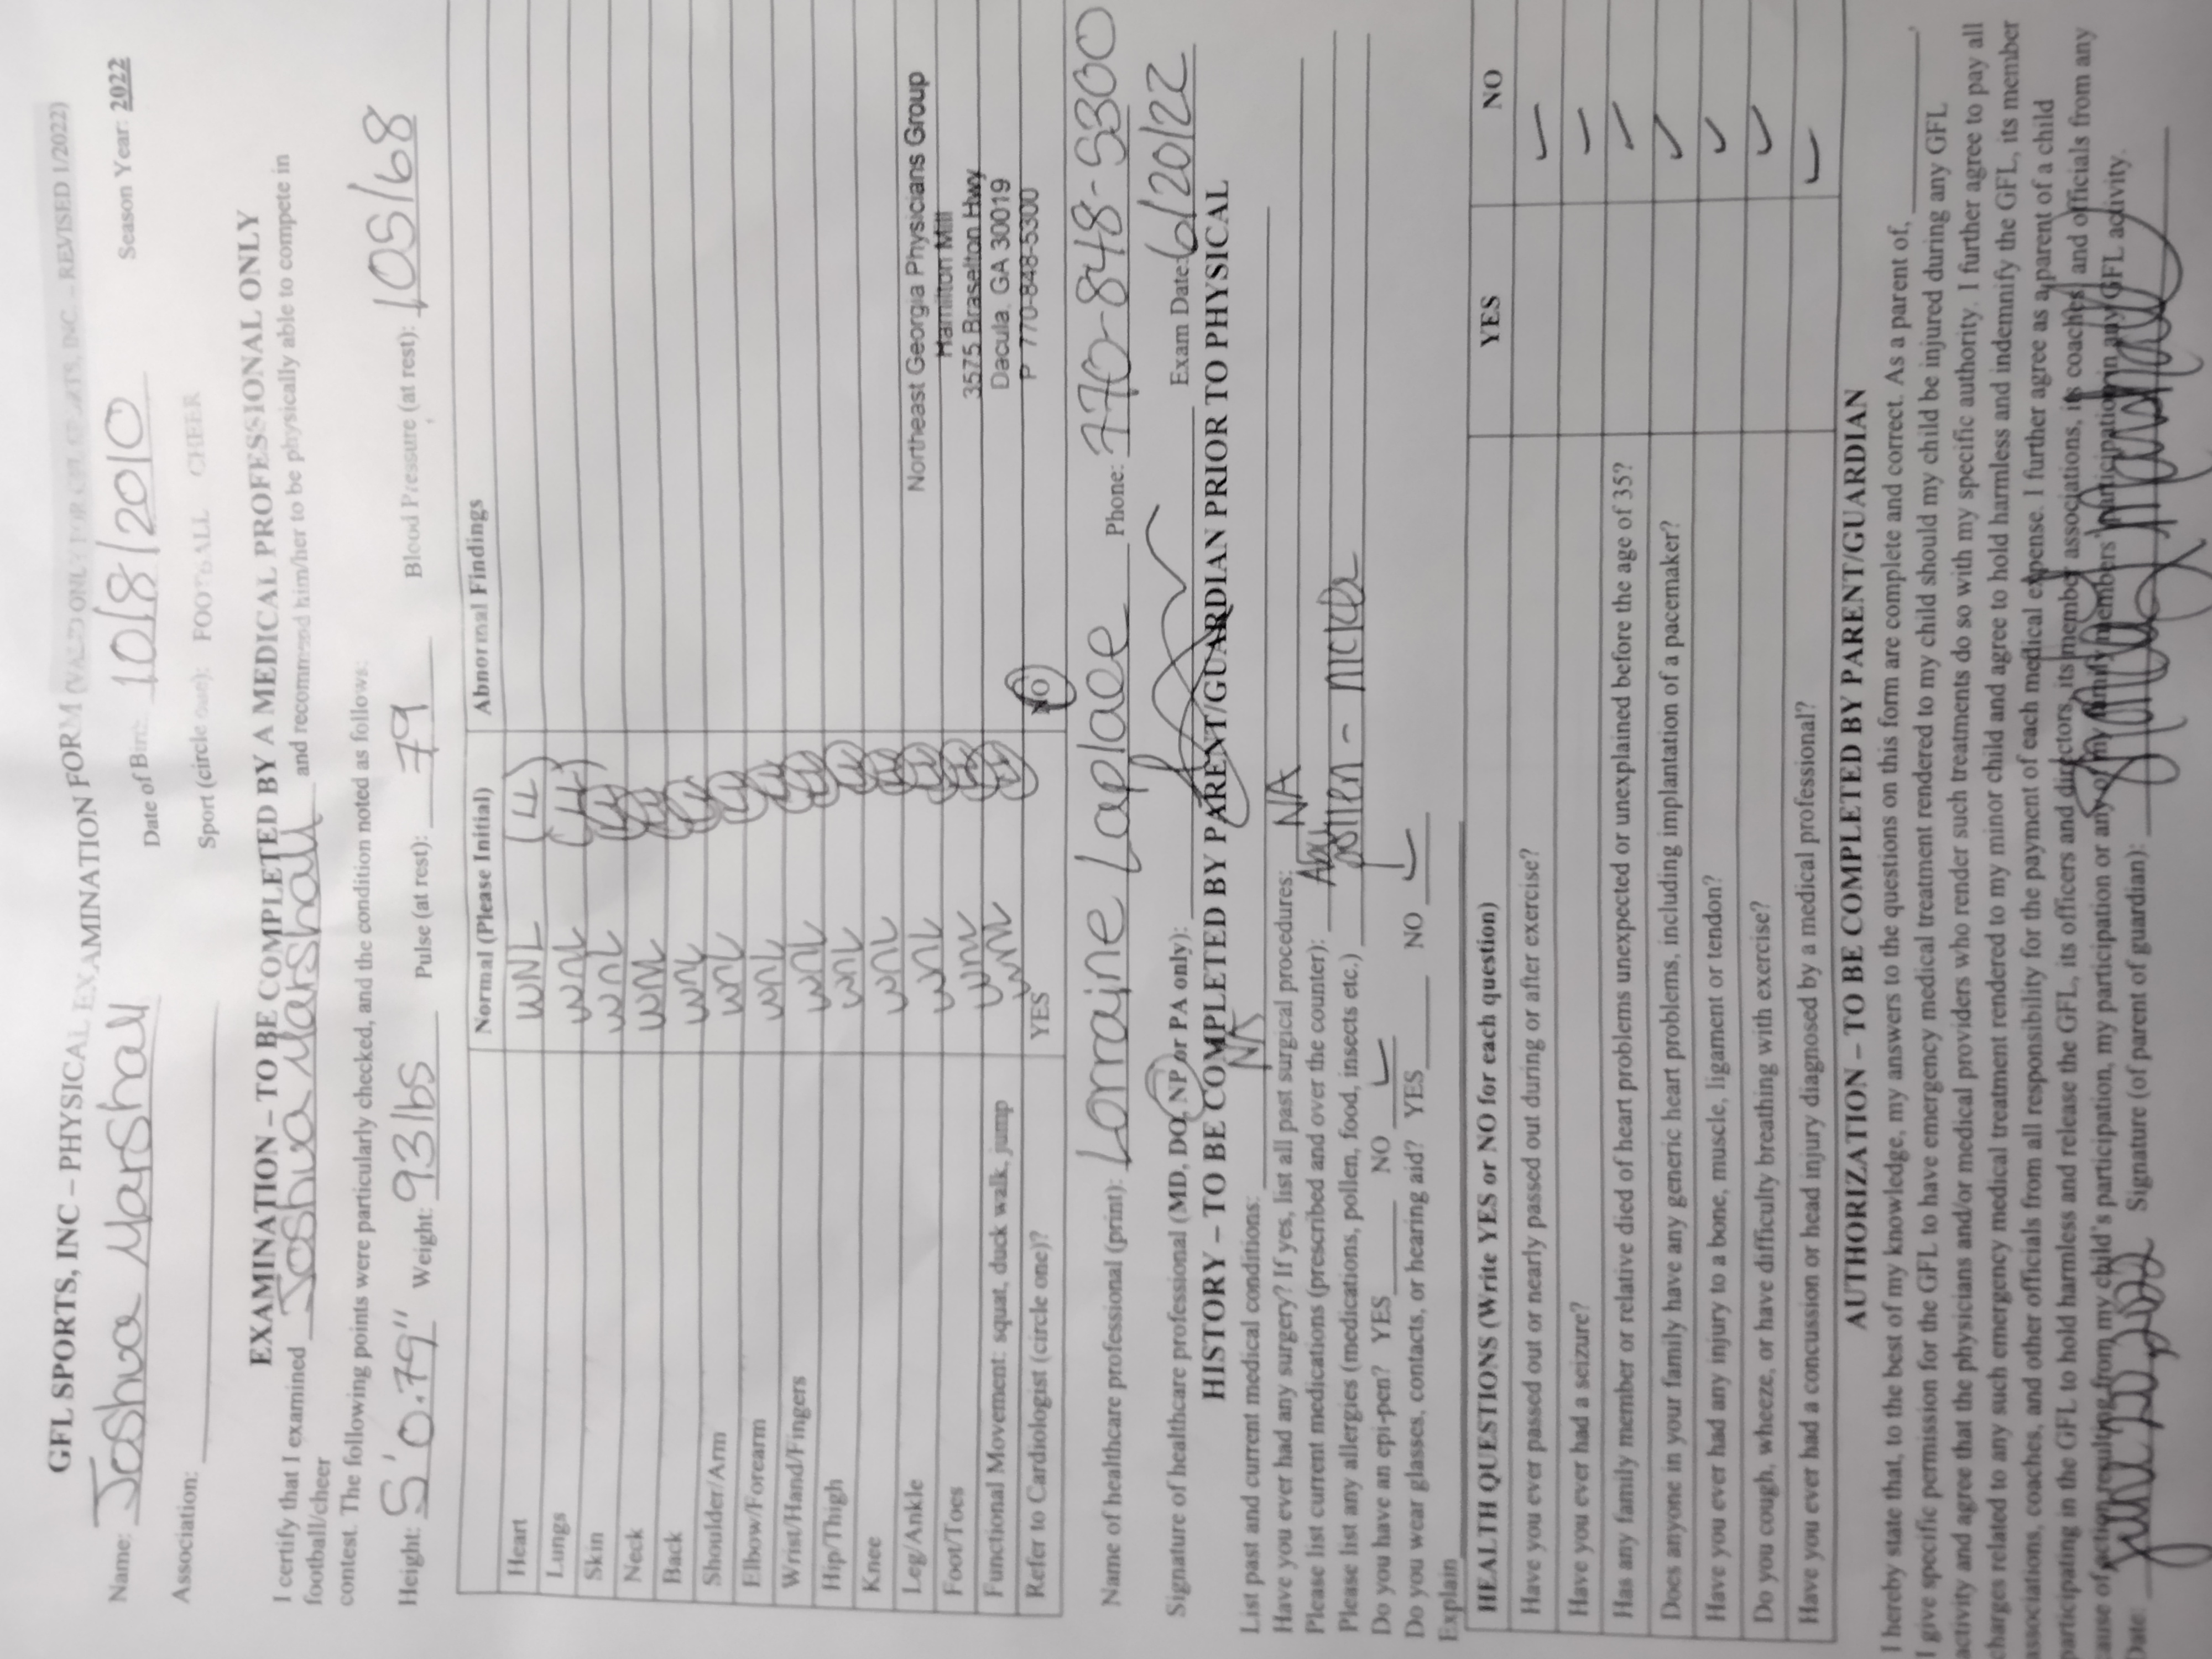 GFL SPORTS, INC – PHYSICAL EXAMINATION FORM (VALID ONLY FOR GFL SPORTS, INC. – REVISED 1/2022)
Name: Joshua Marshall Date of Birth: 10/8/2010 Season Year: 2022
Association: Sport (circle one): FOOTBALL CHEER
EXAMINATION – TO BE COMPLETED BY A MEDICAL PROFESSIONAL ONLY
I certify that I examined Joshua Marshall and recommend him/her to be physically able to compete in
football/cheer
contest. The following points were particularly checked, and the condition noted as follows:
Height: 5'0.79" Weight: 93lbs Pulse (at rest): 79 Blood Pressure (at rest): 105/68
Normal (Please Initial) Abnormal Findings
Heart WNL LL
Lungs WNL LL
Skin WNL LL
Neck WNL LL
Back WNL LL
Shoulder/Arm WNL LL
Elbow/Forearm WNL LL
Wrist/Hand/Fingers WNL LL
Hip/Thigh WNL LL
Knee WNL LL
Leg/Ankle WNL LL
Foot/Toes WNL LL
Functional Movement: squat, duck walk, jump WNL LL
Refer to Cardiologist (circle one)? YES NO
Northeast Georgia Physicians Group
Hamilton Mill
3575 Braselton Hwy
Dacula. GA 30019
P 770-848-5300
Name of healthcare professional (print): Lorraine Laplace Phone: 770-848-5300
Signature of healthcare professional (MD, DO, NP or PA only): Exam Date: 6/20/22
HISTORY – TO BE COMPLETED BY PARENT/GUARDIAN PRIOR TO PHYSICAL
List past and current medical conditions: NA
Have you ever had any surgery? If yes, list all past surgical procedures: NA
Please list current medications (prescribed and over the counter):
Please list any allergies (medications, pollen, food, insects etc.) pollen -
Do you have an epi-pen? YES NO ✓
Do you wear glasses, contacts, or hearing aid? YES NO ✓
Explain
HEALTH QUESTIONS (Write YES or NO for each question) YES NO
Have you ever passed out or nearly passed out during or after exercise? ✓
Have you ever had a seizure? ✓
Has any family member or relative died of heart problems unexpected or unexplained before the age of 35? ✓
Does anyone in your family have any generic heart problems, including implantation of a pacemaker? ✓
Have you ever had any injury to a bone, muscle, ligament or tendon? ✓
Do you cough, wheeze, or have difficulty breathing with exercise? ✓
Have you ever had a concussion or head injury diagnosed by a medical professional? ✓
AUTHORIZATION – TO BE COMPLETED BY PARENT/GUARDIAN
I hereby state that, to the best of my knowledge, my answers to the questions on this form are complete and correct. As a parent of, ,
I give specific permission for the GFL to have emergency medical treatment rendered to my child should my child be injured during any GFL
activity and agree that the physicians and/or medical providers who render such treatments do so with my specific authority. I further agree to pay all
charges related to any such emergency medical treatment rendered to my minor child and agree to hold harmless and indemnify the GFL, its member
associations, coaches, and other officials from all responsibility for the payment of each medical expense. I further agree as a parent of a child
participating in the GFL to hold harmless and release the GFL, its officers and directors, its member associations, its coaches and officials from any
cause of action resulting from my child's participation, my participation or any of my family members' participation in any GFL activity.
Date: June 20, 2022 Signature (of parent of guardian):